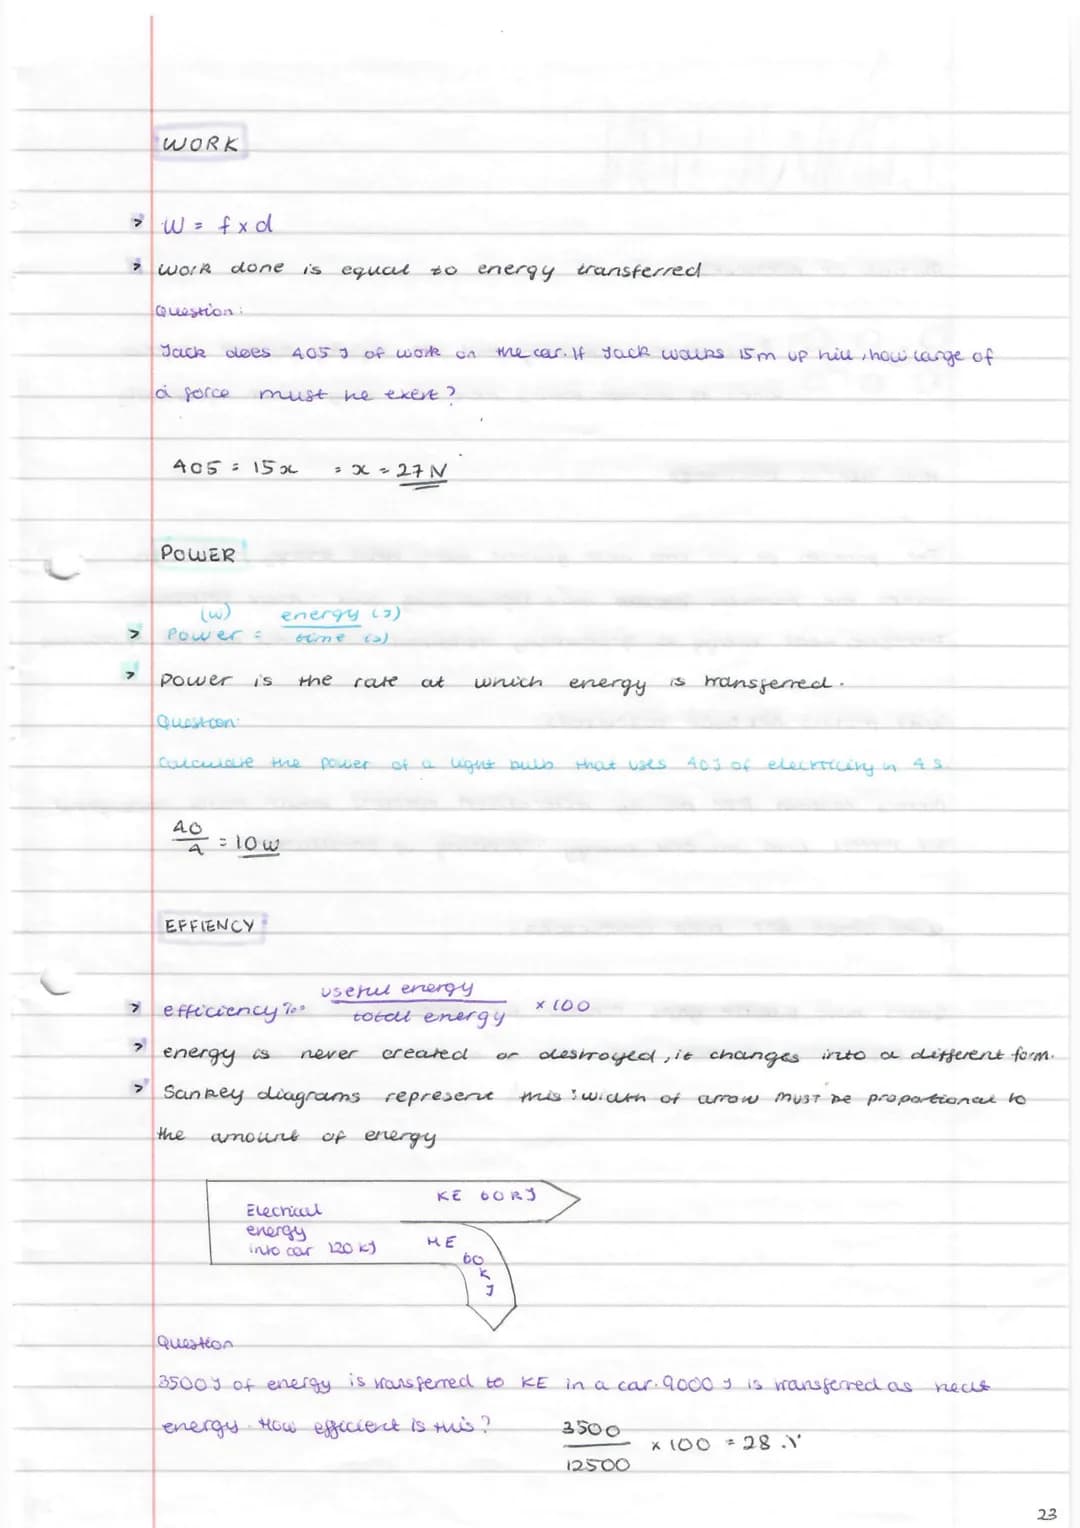 WORK
> W = f x d
> work done is equal to energy transferred
Question:
Jack does 405 J of work on the car. If Jack walks 15m up hill, how large of
a force must he exert?
405 = 15x = x = 27 N
POWER
(w) energy (J)
> Power = time (s)
> power is the rate at which energy is transferred.
Question:
Calculate the power of a light bulb that uses 40J of electricity in 4 s.
40
4 = 10 w
EFFIENCY
useful energy
> efficiency % = total energy x 100
> energy is never created or destroyed, it changes into a different form.
> Sankey diagrams represent this: width of arrow must be proportional to
the amount of energy
KE 60 KJ
Electrical
energy
into car 120 KJ
HE
60
K
J
Question
3500 J of energy is transferred to KE in a car. 9000 J is transferred as heat
energy. How efficient is this?
3500
12500 x 100 = 28 %
23